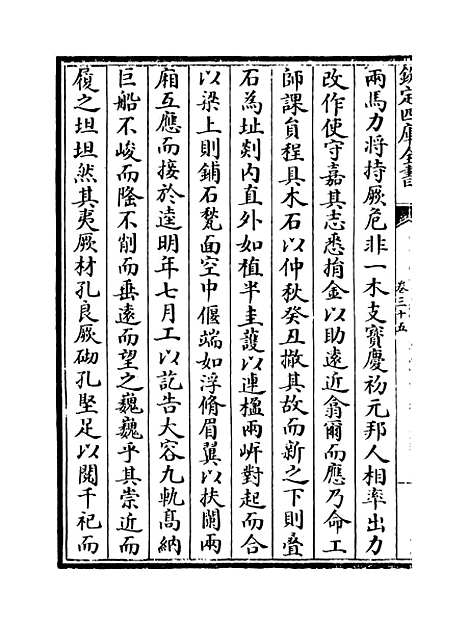 欽定四庫全書
卷三十五
兩馬力將持厥危非一木支寳慶初元邦人相率出力
改作使守嘉其志悉捐金以助遠近翕爾而應乃命工
師課員程具木石以仲秋癸丑撤其故而新之下則疊
石為址剡内直外如植半圭䕶以連楹兩㟁對起而合
以梁上則鋪石甃面空中偃端如浮脩眉翼以扶闌兩
廂互應而接於逵明年七月工以訖告大容九軌髙納
巨船不峻而隆不削而垂逺而望之巍巍乎其崇近而
履之坦坦然其夷厥材孔良厥砌孔堅足以閱千祀而